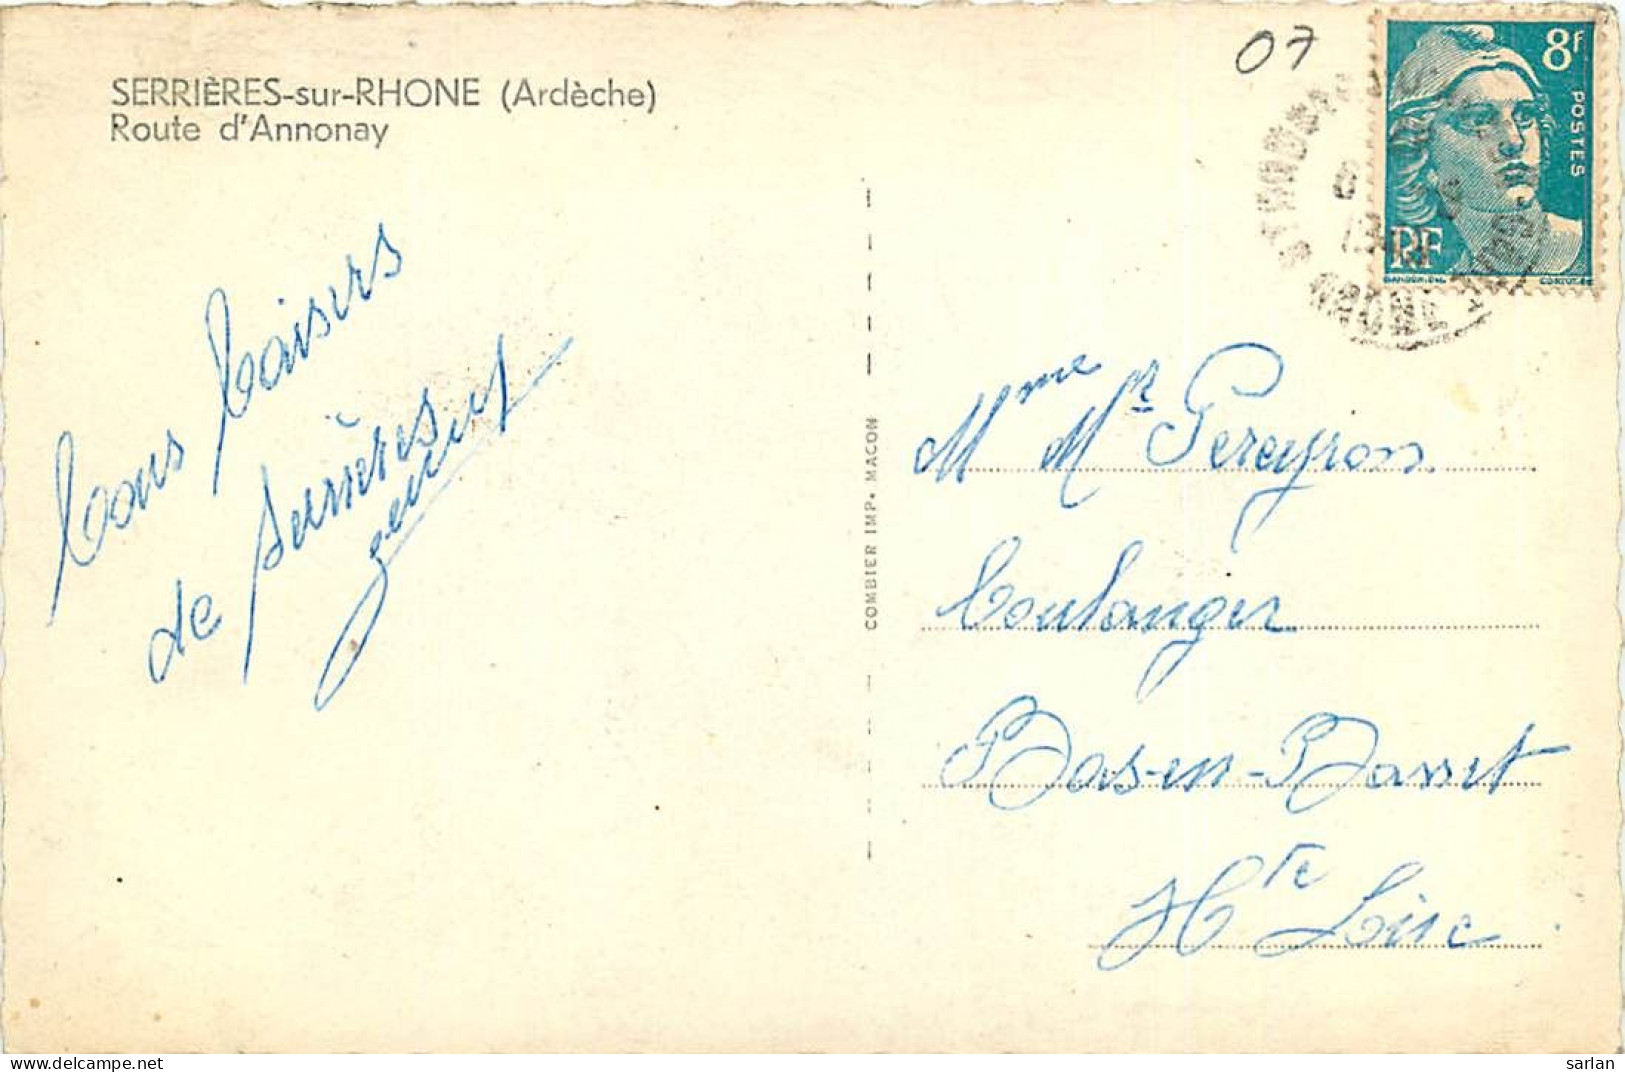 SERRIÈRES-sur-RHONE (Ardèche)
Route d'Annonay
07
8f
POSTES
RF
bons baisers
de Serrières
COMBIER IMP. MACON
Mme Mr Pereyron
boulanger
Bas-en-Basset
Hte Loire
www.delcampe.net
sarlan